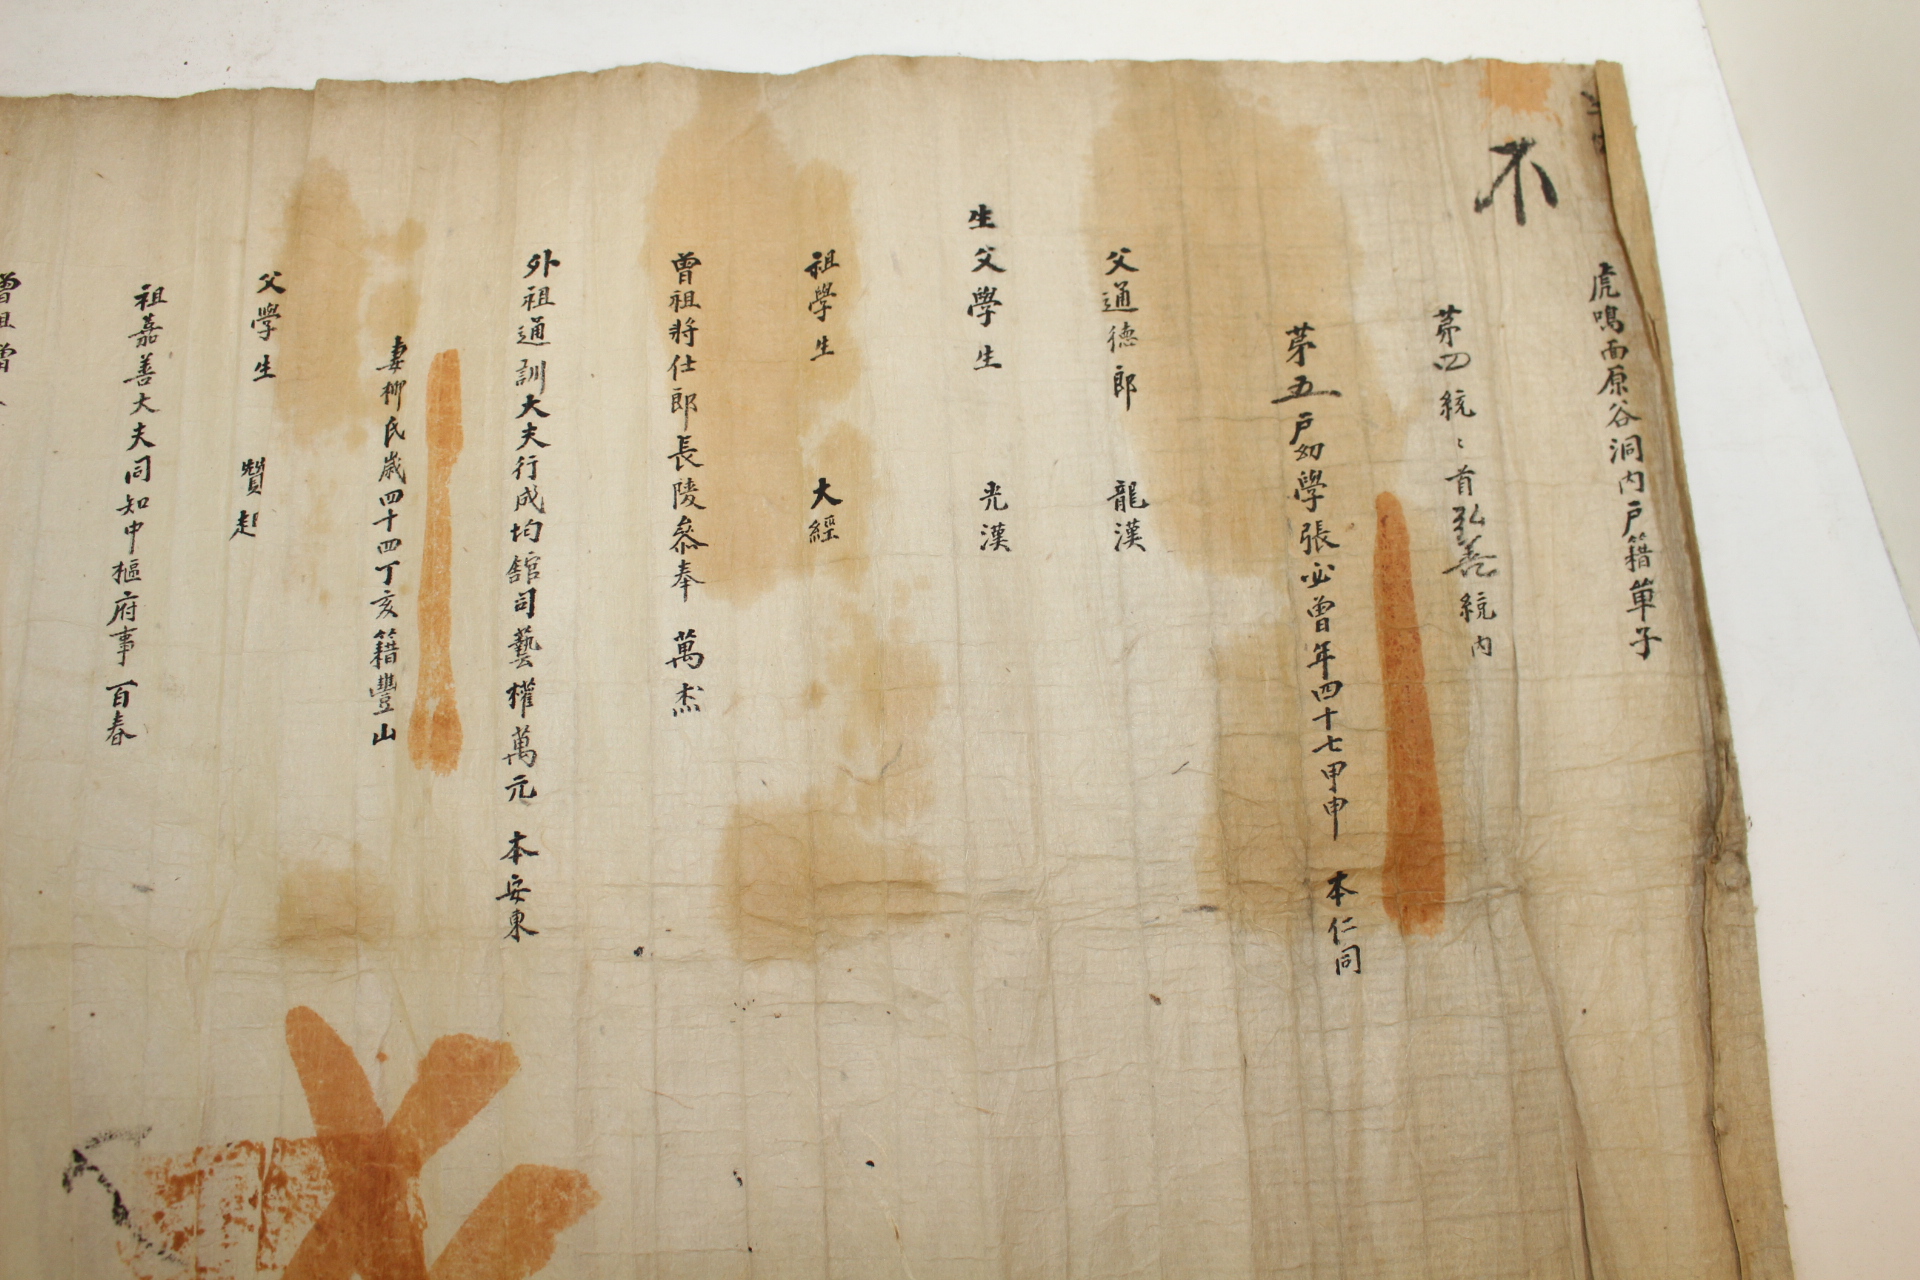 不
虎鳴面原谷洞內戶籍單子
苐四統〻首弘善統內
苐五戶幼學張必曾年四十七甲申 本仁同
父通德郎 龍漢
生父學生 光漢
祖學生 大經
曾祖將仕郎長陵參奉 萬杰
外祖通訓大夫行成均舘司藝權萬元 本安東
妻柳氏歲四十四丁亥籍豐山
父學生 贊起
祖嘉善大夫同知中樞府事 百春
曾祖